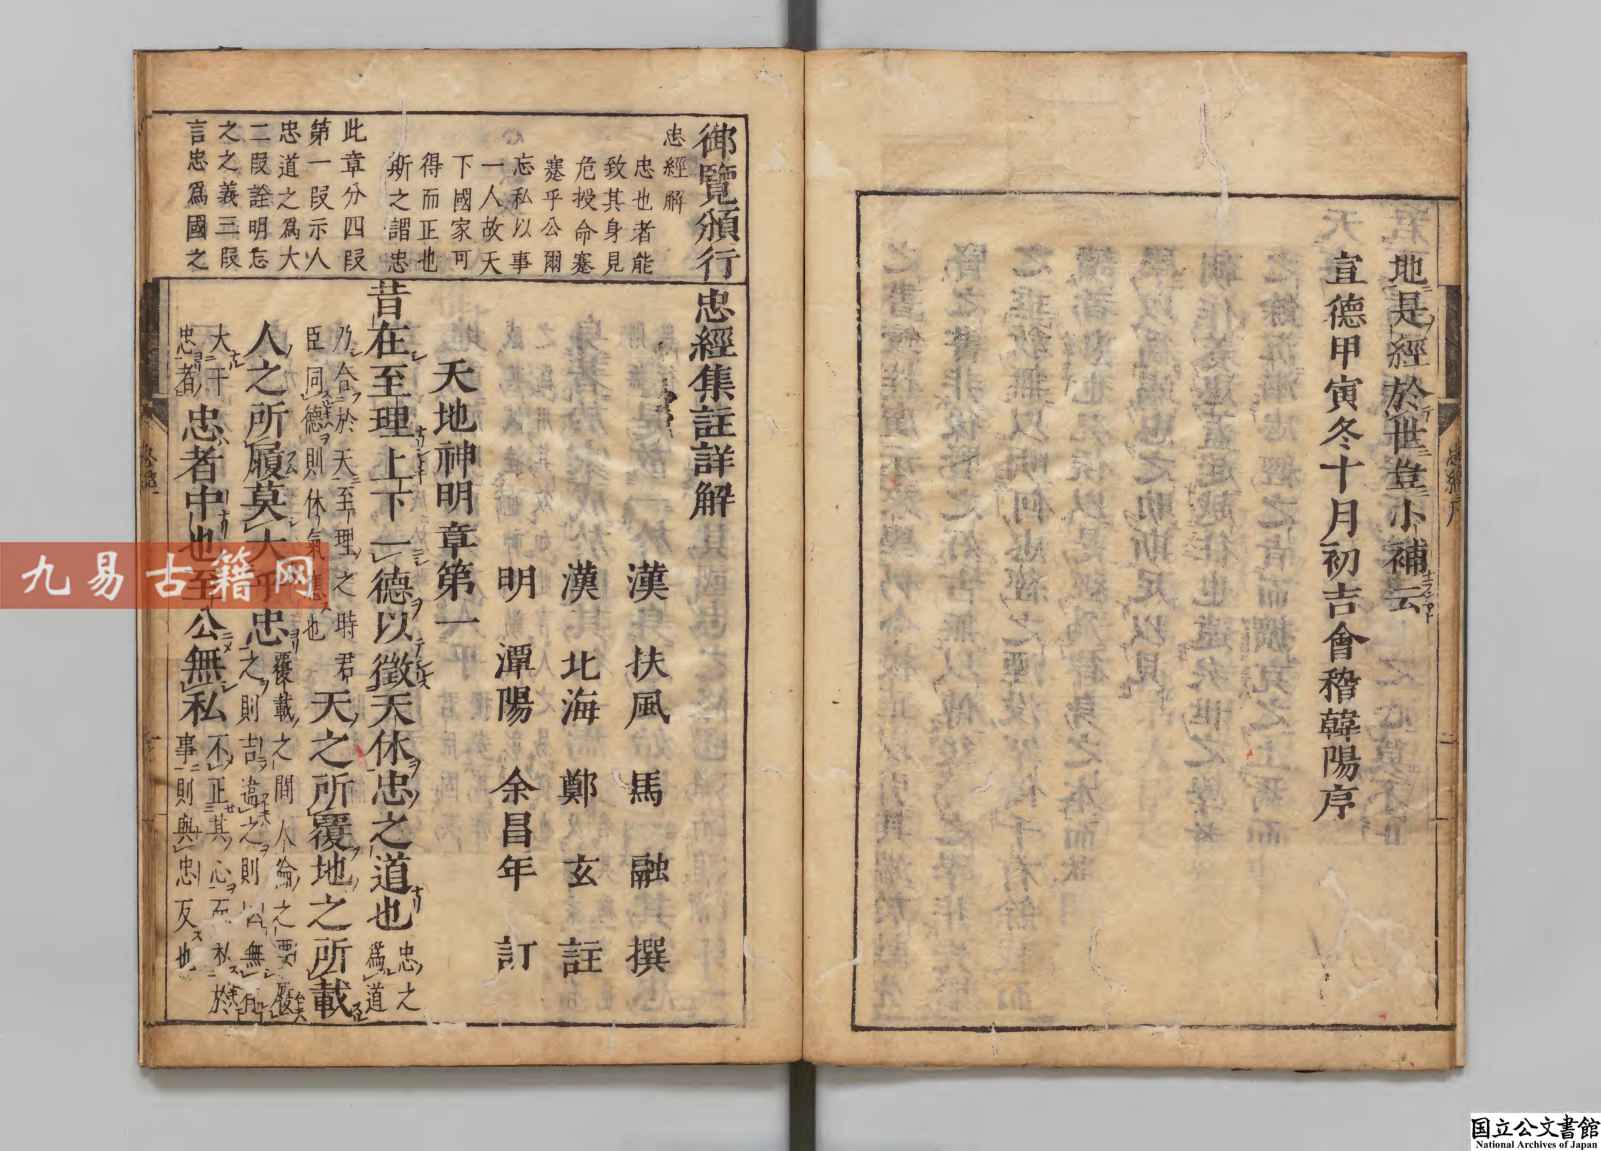 地是經於世豈小補云
宣德甲寅冬十月初吉會稽韓陽序
御覽頒行忠經集註詳解
忠經解
忠也者能
致其身見
危授命蹇
蹇乎公爾
忘私以事
一人故天
下國家可
得而正也
斯之謂忠
此章分四段
第一段示人
忠道之爲大
二段詮明忘
之之義三段
言忠爲國之
漢扶風馬融撰
漢北海鄭玄註
明潭陽余昌年訂
天地神明章第一
昔在至理上下一德以徵天休忠之道也
忠之
爲道
乃合於天至理之時君
臣同德則休氣應也
天之所覆地之所載
人之所履莫大乎忠
覆載之間人倫之要履
之則吉違之則凶無有
大于
忠者
忠者中也至公無私
不正其心而私於
事則與忠反也
九易古籍网
国立公文書館
National Archives of Japan